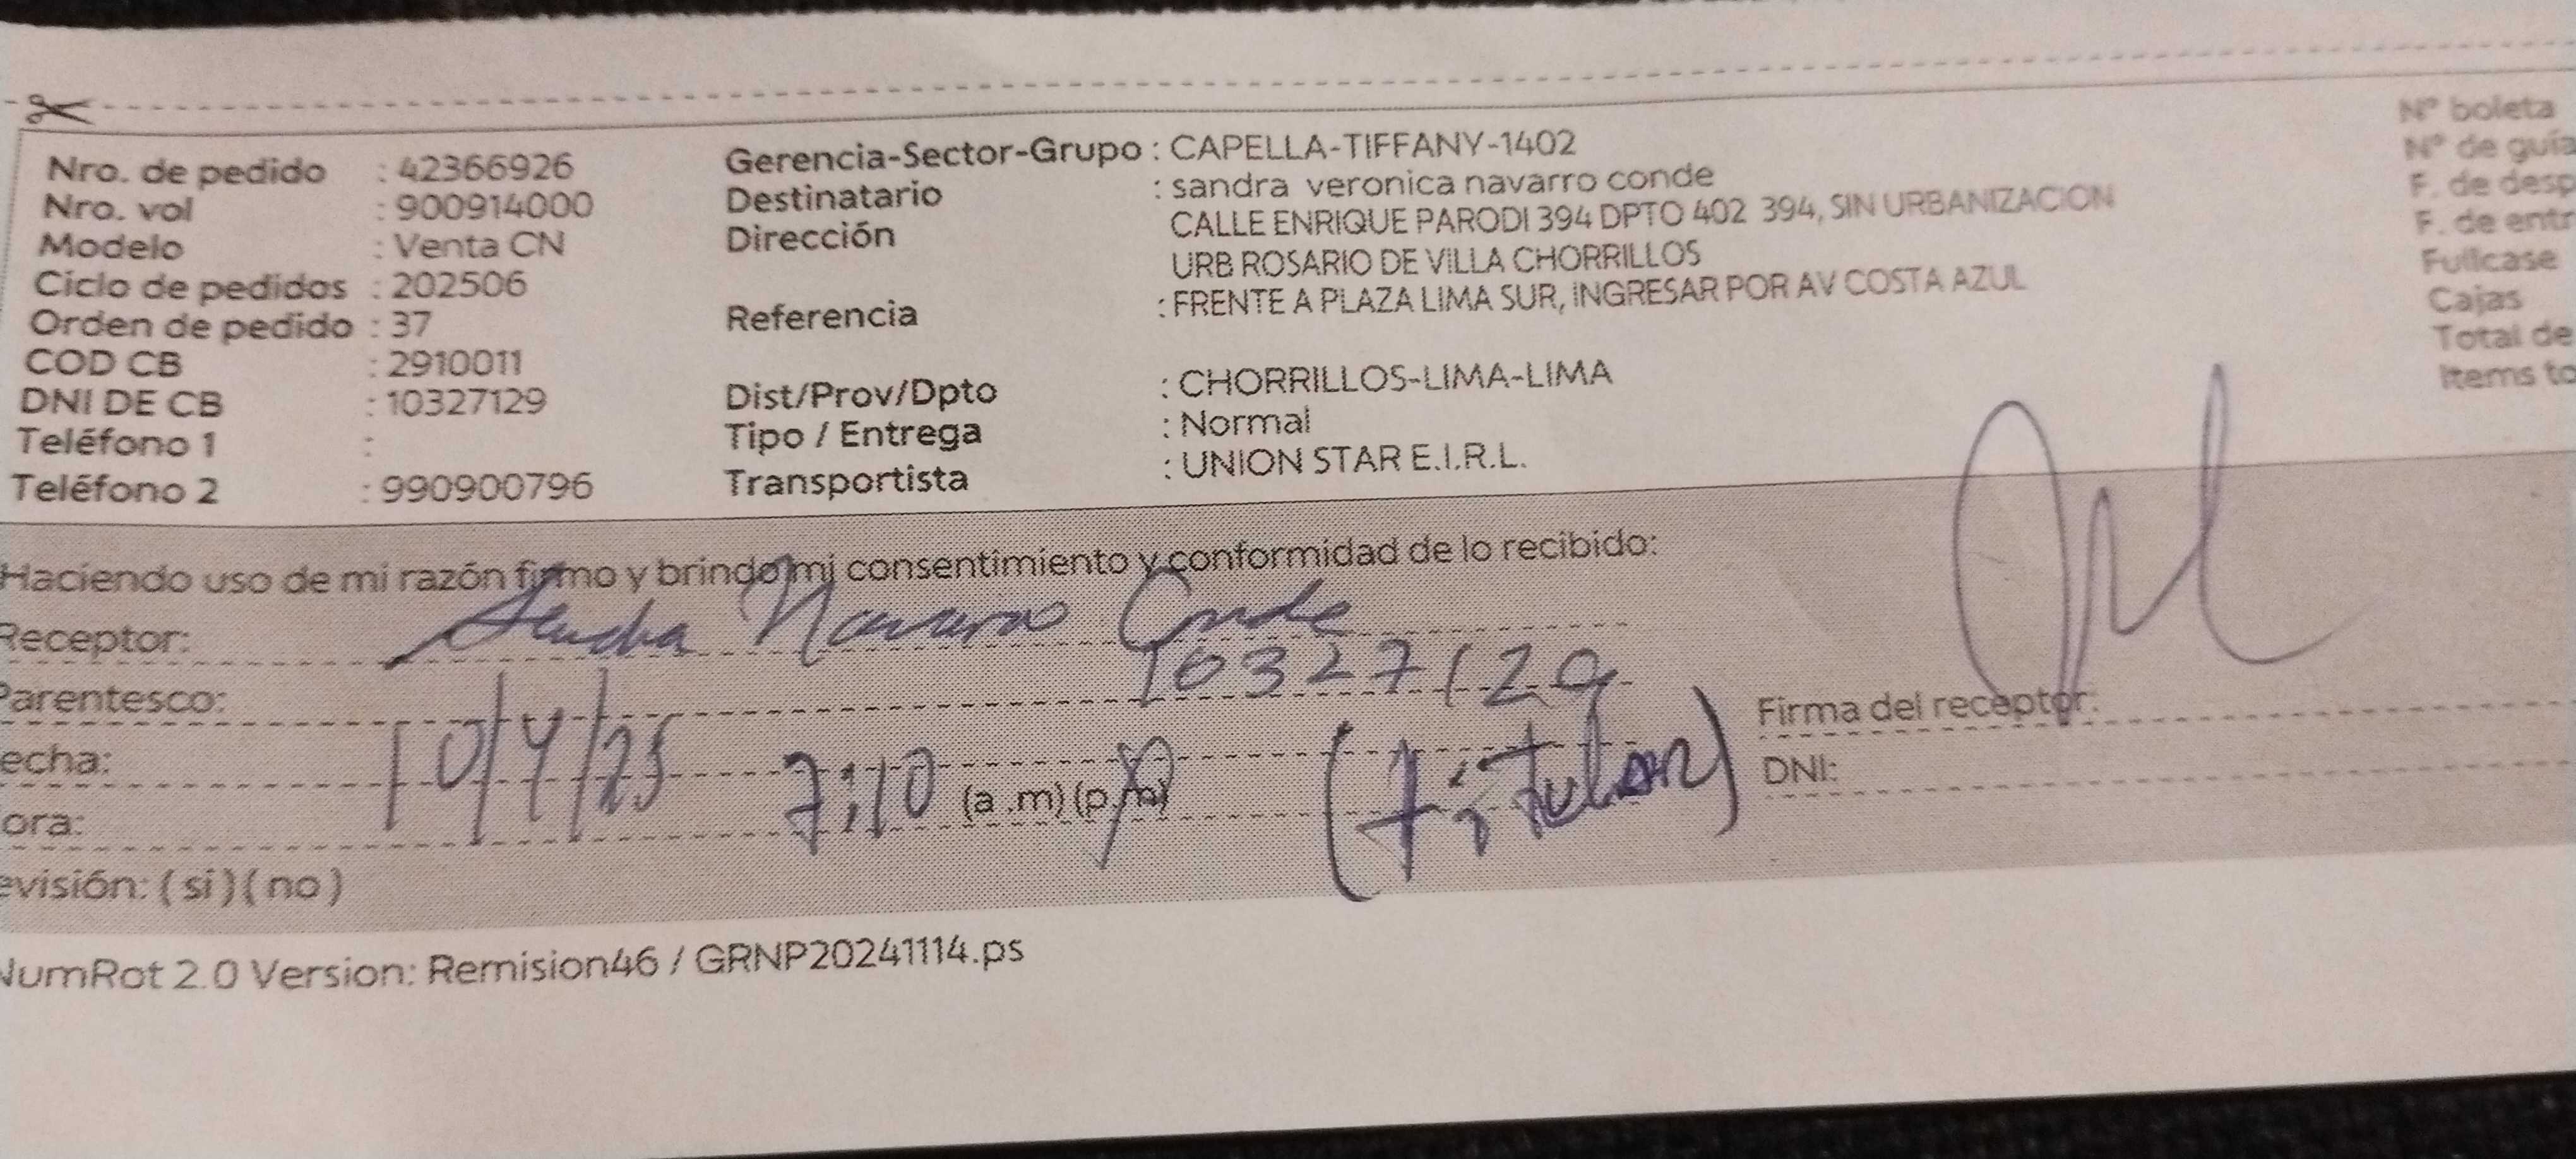 Nro. de pedido : 42366926
Nro. vol : 900914000
Modelo : Venta CN
Ciclo de pedidos : 202506
Orden de pedido : 37
COD CB : 2910011
DNI DE CB : 10327129
Teléfono 1 :
Teléfono 2 : 990900796
Gerencia-Sector-Grupo : CAPELLA-TIFFANY-1402
Destinatario : sandra veronica navarro conde
Dirección CALLE ENRIQUE PARODI 394 DPTO 402 394, SIN URBANIZACION
URB ROSARIO DE VILLA CHORRILLOS
Referencia : FRENTE A PLAZA LIMA SUR, INGRESAR POR AV COSTA AZUL
Dist/Prov/Dpto : CHORRILLOS-LIMA-LIMA
Tipo / Entrega : Normal
Transportista : UNION STAR E.I.R.L.
Nº boleta
Nº de guía
F. de desp
F. de entr
Fullcase
Cajas
Total de
Items to
Haciendo uso de mi razón firmo y brindo mi consentimiento y conformidad de lo recibido:
Receptor: Sandra Navarro Conde
Parentesco: 10327129
echa: 10/4/25
ora: 7:10 (a.m)(p.m) (titular)
evisión: ( si )( no )
Firma del receptor:
DNI:
NumRot 2.0 Version: Remision46 / GRNP20241114.ps